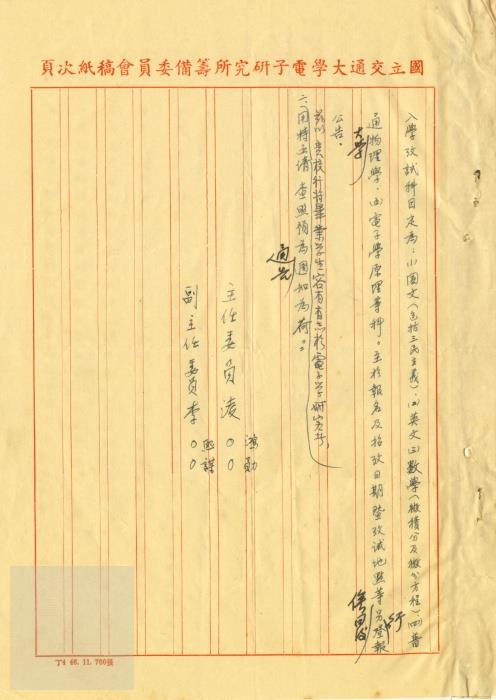 國立交通大學電子研究所籌備委員會稿紙次頁
入學攷試科目定為：(1)國文(包括三民主義)，(二)英文(三)數學(微積分及微分方程)，(四)普
通物理學，(五)電子學原理等科。至於報名及招攷日期暨攷試地點等另登報
大學
公告。
茲以貴校行將畢業學生容有有志於電子學研究者，
二、用特函請查照預為週知為荷。
主任委員凌○○
鴻勛
副主任委員李○○
熙謀
丁4 46. 11. 700張